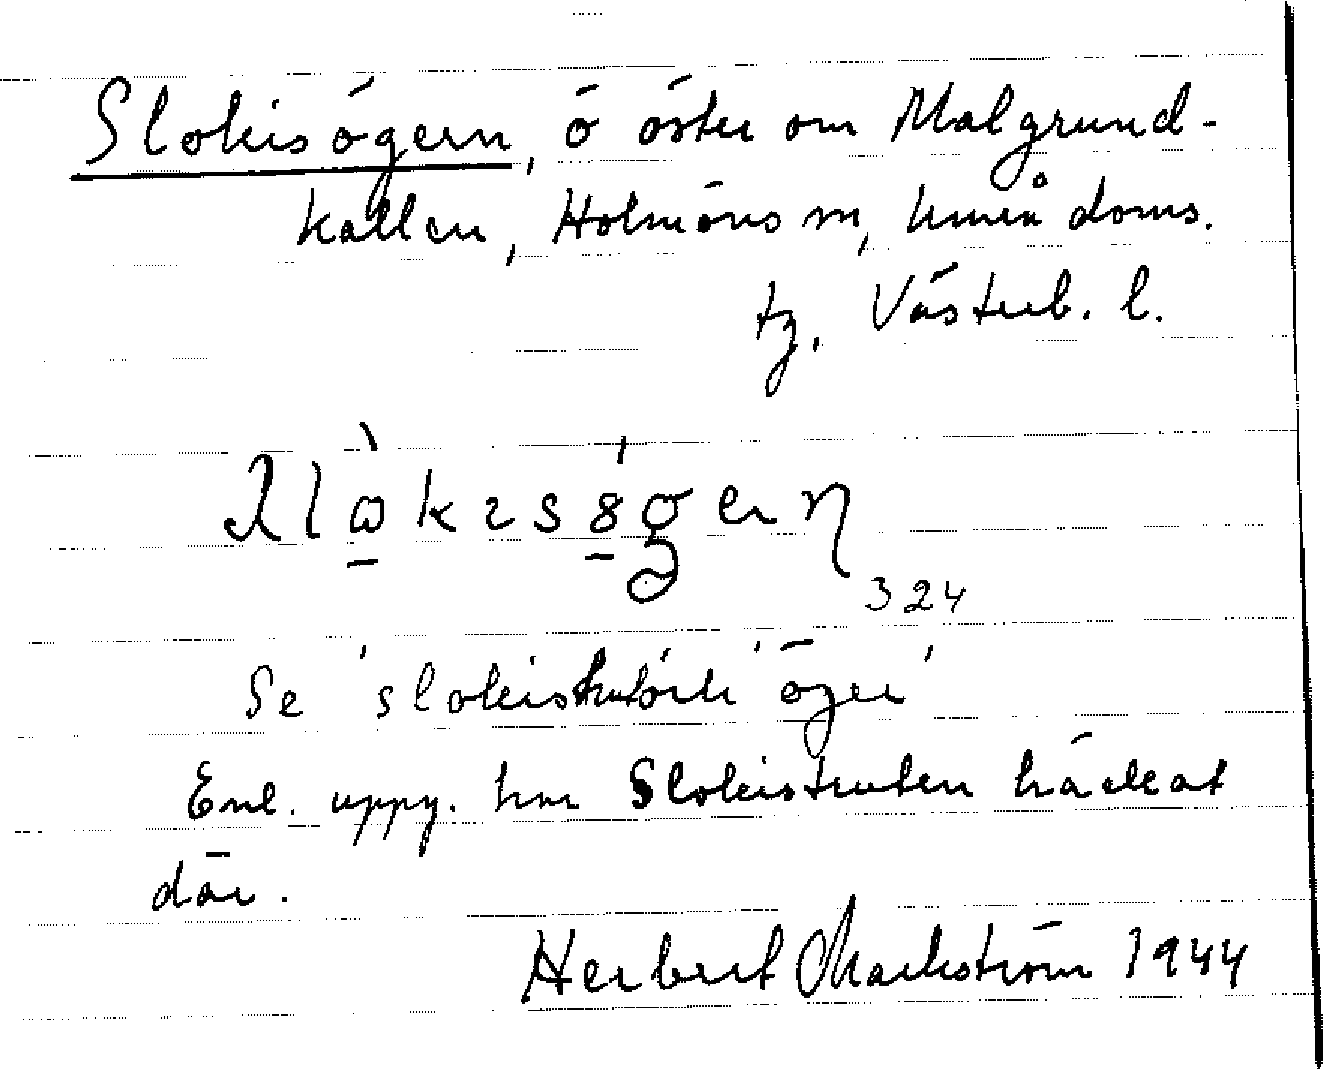 Slokisögern, ö öster om Malgrund-
kallen, Holmöns sn, Umeå doms.
tg, Västerb. l.
324
Se 'slokis 'öger'
Enl. uppg. har Slokistruten häckat
där.
Herbert Markström 1944